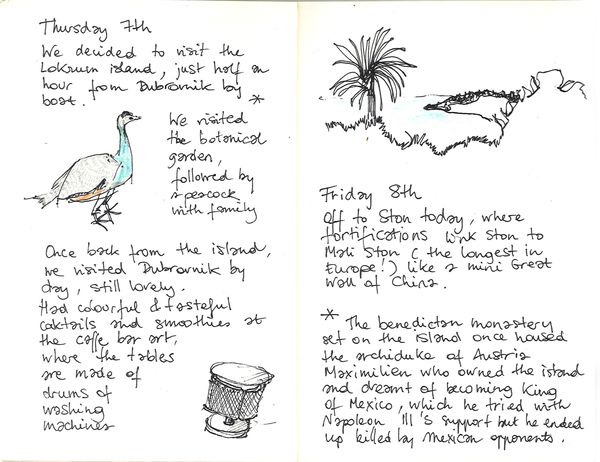 Thursday 7th
We decided to visit the
Lokrum island, just half an
hour from Dubrovnik by
boat. *
We visited
the botanical
garden,
followed by
a peacock
with family
Once back from the island,
we visited Dubrovnik by
day, still lovely.
Had colourful & tasteful
coktails and smoothies at
the caffe bar art,
where the tables
are made of
drums of
washing
machines
Friday 8th
Off to Ston today, where
fortifications link Ston to
Mali Ston ( the longest in
Europe!) like a mini Great
Wall of China.
* The benedictan monastery
set on the island once housed
the archiduke of Austria
Maximilien who owned the island
and dreamt of becoming King
of Mexico, which he tried with
Napoleon III's support but he ended
up killed by mexican opponents.